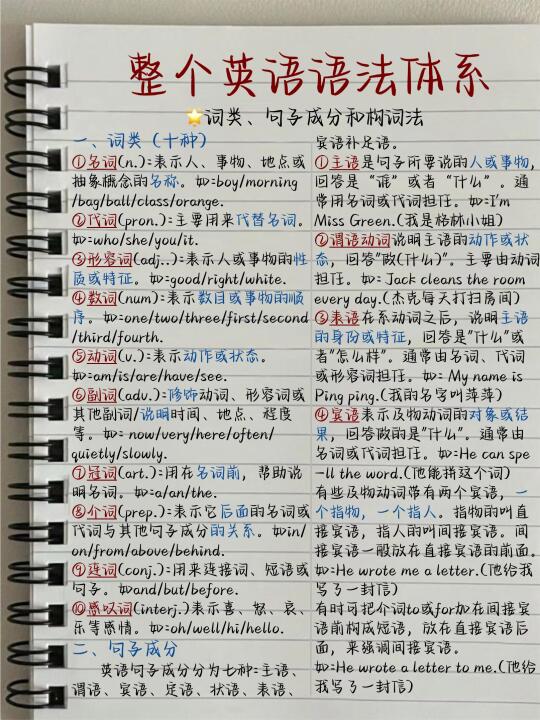 整个英语语法体系
词类、句子成分和构词法
一、词类（十种）
①名词(n.):表示人、事物、地点或
抽象概念的名称。如:boy/morning
/bag/ball/class/orange.
②代词(pron.):主要用来代替名词。
如:who/she/you/it.
③形容词(adj..):表示人或事物的性
质或特征。如:good/right/white.
④数词(num):表示数目或事物的顺
序。如:one/two/three/first/second
/third/fourth.
⑤动词(v.):表示动作或状态。
如:am/is/are/have/see.
⑥副词(adv.):修饰动词、形容词或
其他副词/说明时间、地点、程度
等。如: now/very/here/often/
quietly/slowly.
⑦冠词(art.):用在名词前，帮助说
明名词。如:a/an/the.
⑧介词(prep.):表示它后面的名词或
代词与其他句子成分的关系。如in/
on/from/above/behind.
⑨连词(conj.):用来连接词、短语或
句子。如and/but/before.
⑩感叹词(interj.)表示喜、怒、哀、
乐等感情。如:oh/well/hi/hello.
二、句子成分
英语句子成分分为七种:主语、
谓语、宾语、定语、状语、表语、
宾语补足语。
①主语是句子所要说的人或事物，
回答是“谁”或者“什么”。通
常用名词或代词担任。如:I'm
Miss Green.(我是格林小姐)
②谓语动词说明主语的动作或状
态，回答"做(什么)"。主要由动词
担任。如: Jack cleans the room
every day.(杰克每天打扫房间)
③表语在系动词之后，说明主语
的身份或特征，回答是"什么"或
者"怎么样"。通常由名词、代词
或形容词担任。如: My name is
Ping ping.(我的名字叫萍萍)
④宾语表示及物动词的对象或结
果，回答做的是"什么"。通常由
名词或代词担任。如:He can spe
-ll the word.(他能拼这个词)
有些及物动词带有两个宾语，一
个指物，一个指人。指物的叫直
接宾语，指人的叫间接宾语。间
接宾语一般放在直接宾语的前面。
如:He wrote me a letter.(他给我
写了一封信)
有时可把介词to或for加在间接宾
语前构成短语，放在直接宾语后
面，来强调间接宾语。
如:He wrote a letter to me.(他给
我写了一封信)